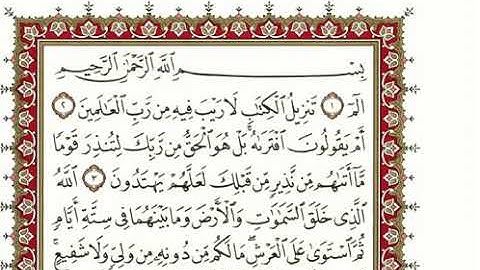 بِسْمِ ٱللَّهِ ٱلرَّحْمَٰنِ ٱلرَّحِيمِ
الٓمٓ ١ تَنزِيلُ ٱلْكِتَٰبِ لَا رَيْبَ فِيهِ مِن رَّبِّ ٱلْعَٰلَمِينَ ٢
أَمْ يَقُولُونَ ٱفْتَرَىٰهُ ۚ بَلْ هُوَ ٱلْحَقُّ مِن رَّبِّكَ لِتُنذِرَ قَوْمًا
مَّآ أَتَىٰهُم مِّن نَّذِيرٍ مِّن قَبْلِكَ لَعَلَّهُمْ يَهْتَدُونَ ٣ ٱللَّهُ
ٱلَّذِى خَلَقَ ٱلسَّمَٰوَٰتِ وَٱلْأَرْضَ وَمَا بَيْنَهُمَا فِى سِتَّةِ أَيَّامٍ
ثُمَّ ٱسْتَوَىٰ عَلَى ٱلْعَرْشِ ۖ مَا لَكُم مِّن دُونِهِۦ مِن وَلِىٍّ وَلَا شَفِيعٍ ۚ